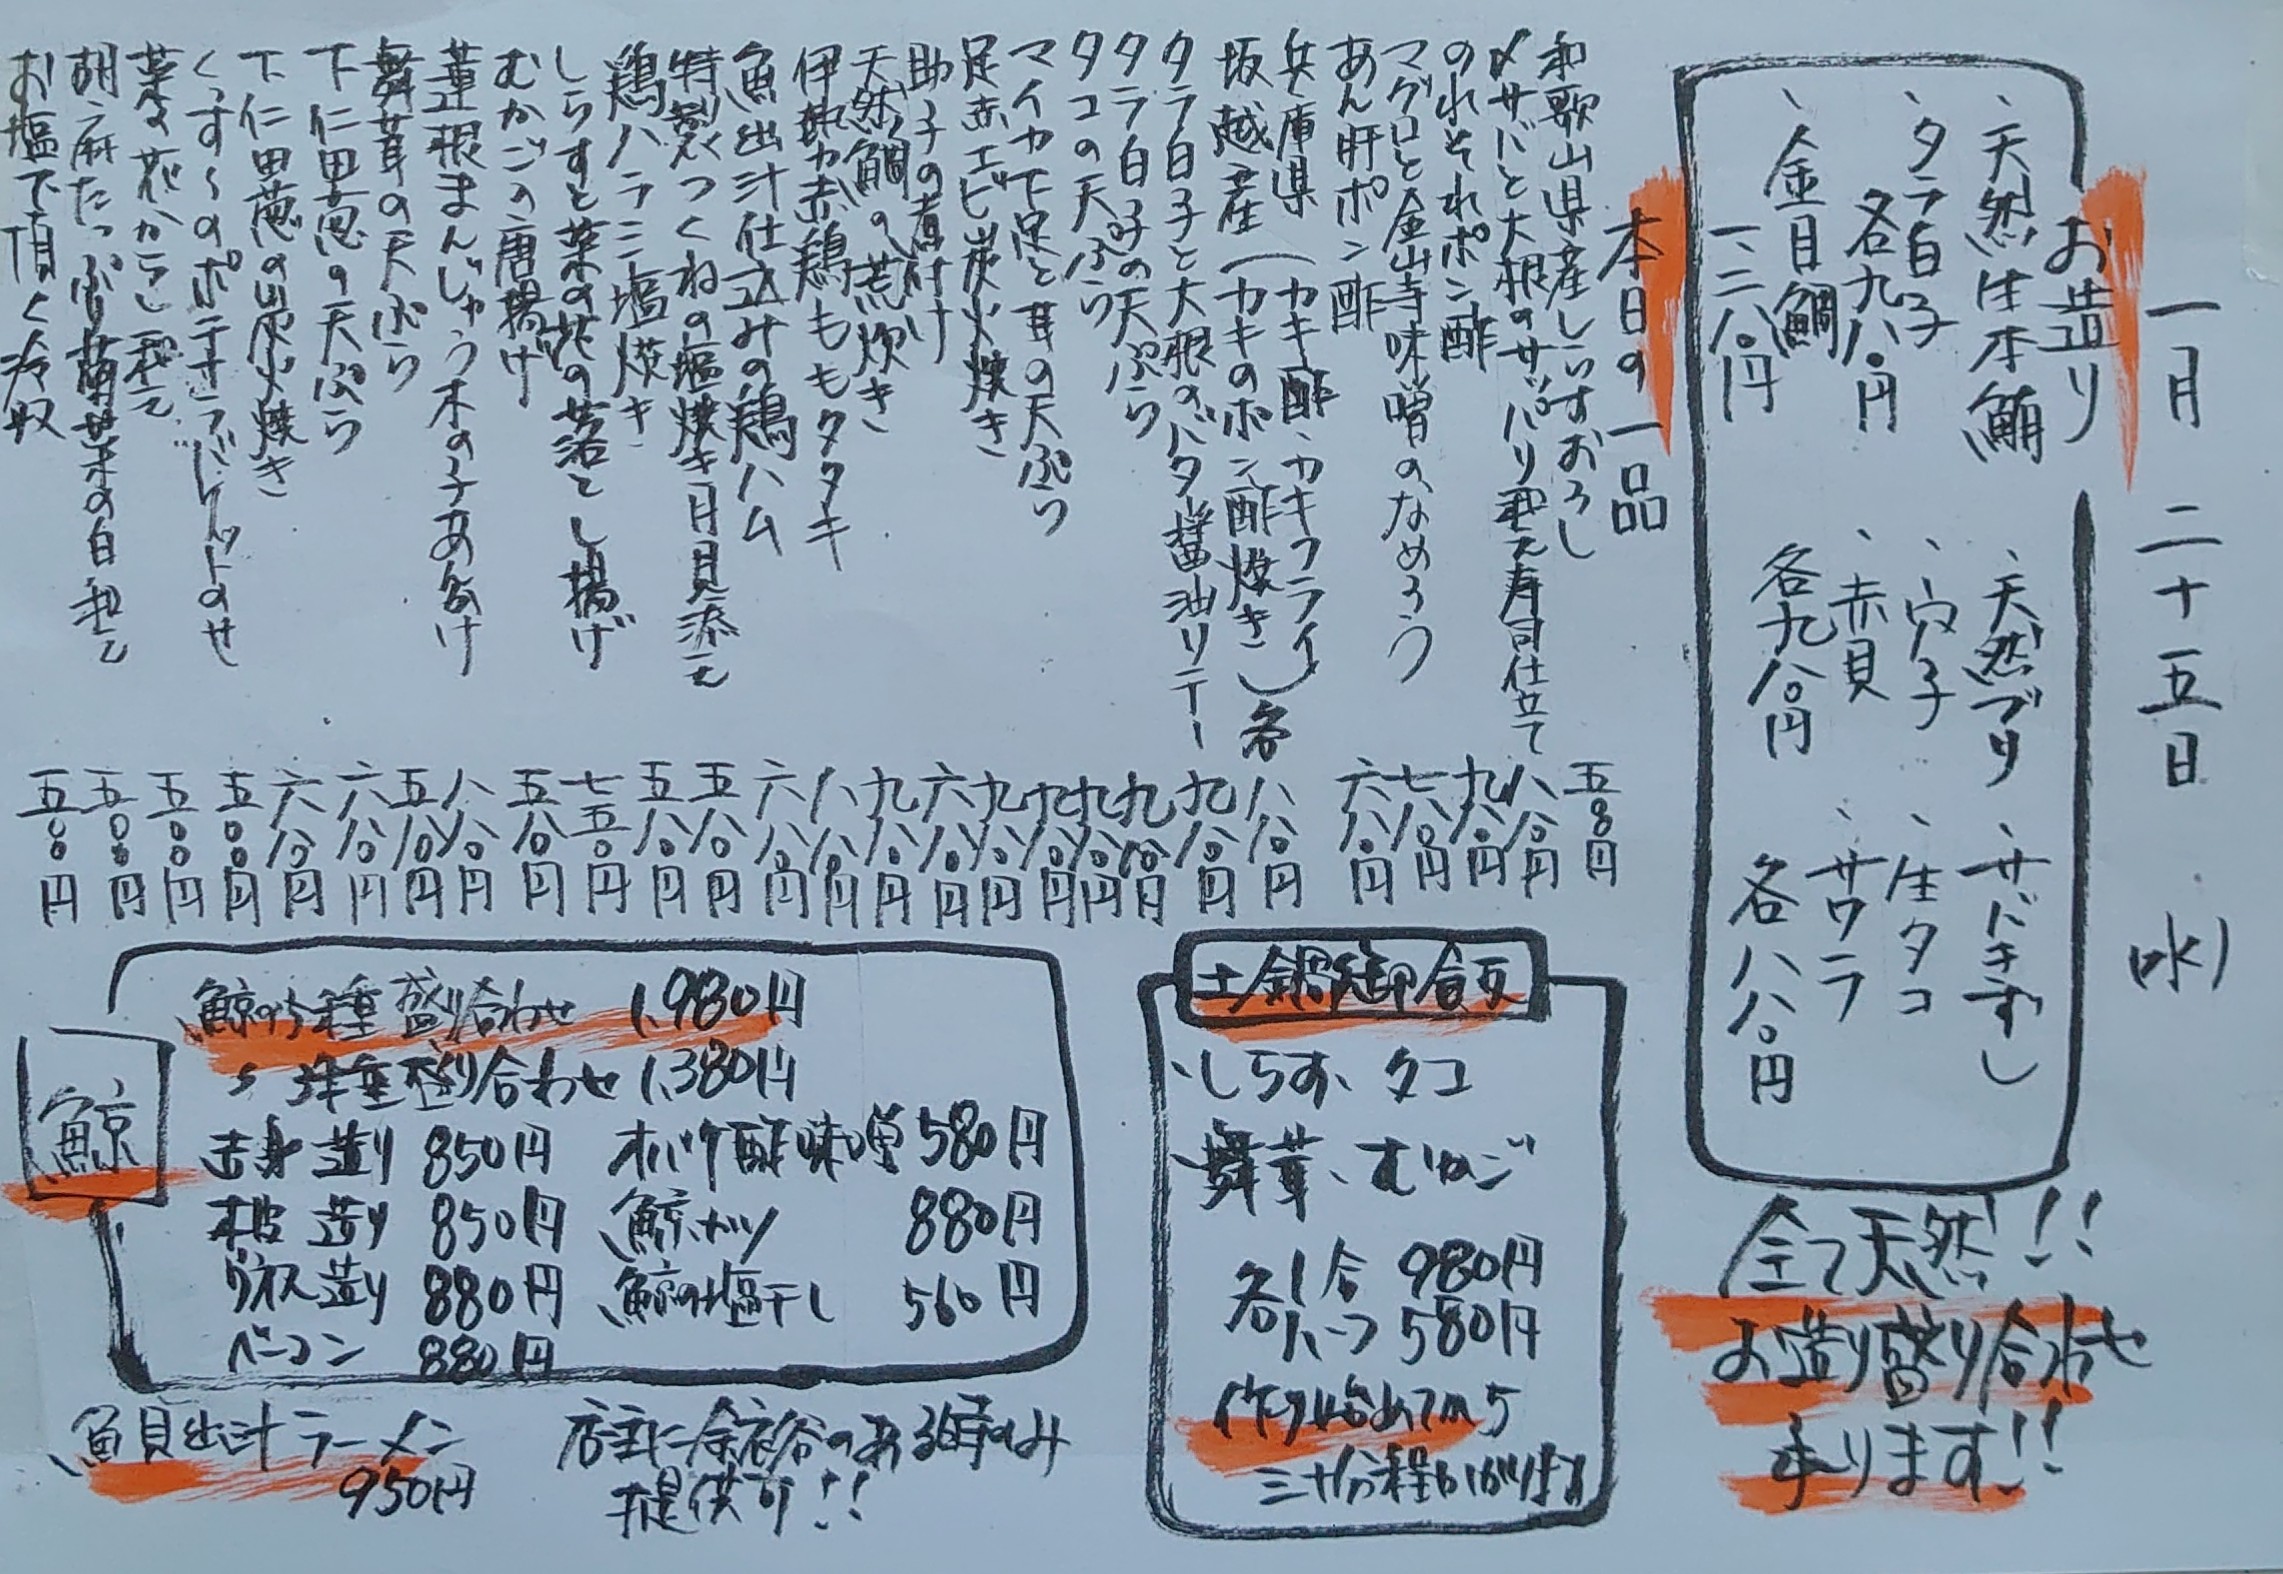 一月二十五日 水
お造り
、天然生本鮪
、タラ白子
各九八〇円
、金目鯛
一、二八〇円
、天然ブリ
、穴子
、赤貝
各九八〇円
、サバきずし
、生タコ
、サワラ
各八八〇円
全て天然!!
お造り盛り合わせ
承ります!!
本日の一品
和歌山県産しらすおろし 五八〇円
〆サバと大根のサッパリ和え寿司仕立て 八八〇円
のれそれポン酢 九八〇円
マグロと金山寺味噌のなめろう 七八〇円
あん肝ポン酢 六八〇円
兵庫県 (カキ酢、カキフライ
坂越産 (カキのポン酢焼き) 各八八〇円
タラ白子と大根のバター醤油リテー 九八〇円
タラ白子の天ぷら 九八〇円
タコの天ぷら 九八〇円
マイカ下足と茸の天ぷら 九八〇円
足赤エビ炭火焼き 九八〇円
助子の煮付け 六八〇円
天然鯛の荒炊き 九八〇円
伊勢赤鶏ももタタキ 八八〇円
魚出汁仕込みの鶏ハム 六八〇円
特製つくねの塩焼き月見添え 五八〇円
鶏ハラミ塩焼き 五八〇円
しらすと菜の花の落とし揚げ 七五〇円
むかごの唐揚げ 五八〇円
蓮根まんじゅう木の子あんかけ 八八〇円
舞茸の天ぷら 五八〇円
下仁田葱の天ぷら 六八〇円
下仁田葱の炭火焼き 六八〇円
くっすーのポテサラ バケットのせ 五〇〇円
菜の花からし和え 五〇〇円
胡麻たっぷり 菊菜の白和え 五〇〇円
お塩で頂く冷奴 五〇〇円
土鍋御飯
、しらす、タコ
、舞茸、むかご
各1合 980円
各ハーフ 580円
作り始めてから
三十分程かかります
鯨
鯨の5種盛り合わせ 1,980円
〃 3種盛り合わせ 1,380円
赤身造り 850円
本皮造り 850円
ウネス造り 880円
ベーコン 880円
オバケ酢味噌 580円
鯨カツ 880円
鯨の塩干し 560円
魚貝出汁ラーメン
950円
店主に余裕のある時のみ
提供可!!